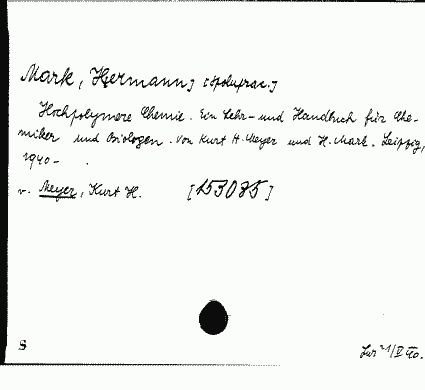 Mark, Hermann, [społuprac.]
Hochpolymere Chemie. Ein Lehr- und Handbuch für Che-
miker und Biologen. Von Kurt H. Meyer und H. Mark. Leipzig,
1940-
v. Meyer, Kurt H. [153075]
S
21/V 40.